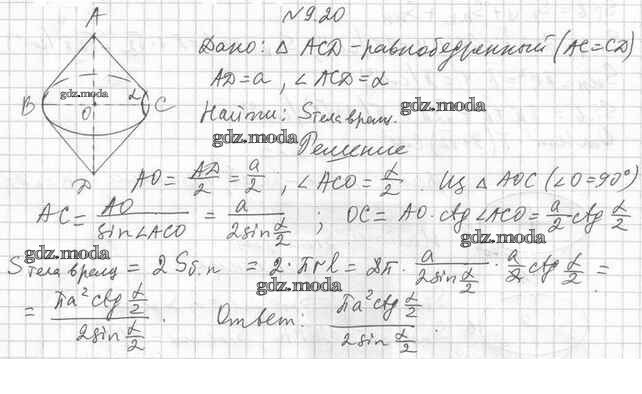 N9.20
A
Дано: △ ACD - равнобедренный (AC=CD)
AD=a, ∠ACD=α
B gdz.moda α
O C
Найти: Sтела вращ.
gdz.moda
Решение
D
AO = AD/2 = a/2 ; ∠ACO = α/2 . Из △ AOC (∠O=90°)
gdz.moda
AC = AO/sin∠ACO = a/(2sin α/2) ; OC = AO·ctg ∠ACO = a/2 ctg α/2
gdz.moda
gdz.moda
Sтела вращ = 2Sб.п = 2·πrl = 2π · a/(2sin α/2) · a/2 ctg α/2 =
gdz.moda
= (πa² ctg α/2)/(2sin α/2) . Ответ: (πa² ctg α/2)/(2sin α/2) .